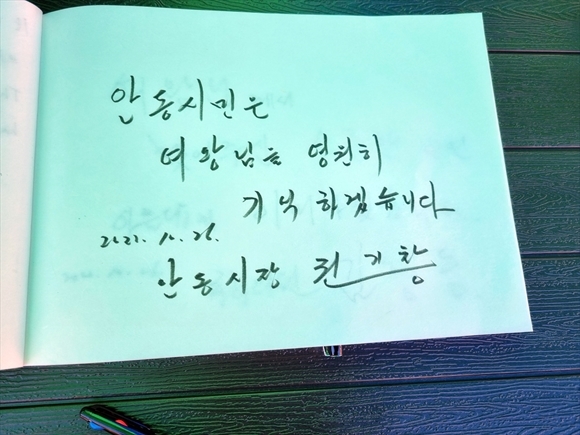 안동시민은
여왕님을 영원히
기억하겠습니다
2022. 10. 26.
안동시장 권기창